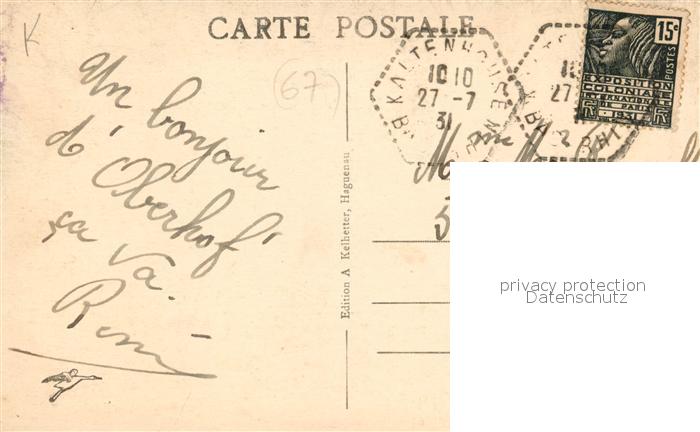 CARTE POSTALE
K
(67)
Un bonjour
d'Oberhof
ça va.
René
Edition A Kelhetter, Haguenau
KALTENHOUSE
10 10
27 -7
31
BAS RHIN
15c
POSTES
EXPOSITION
COLONIALE
INTERNATIONALE
PARIS 1931
privacy protection
Datenschutz